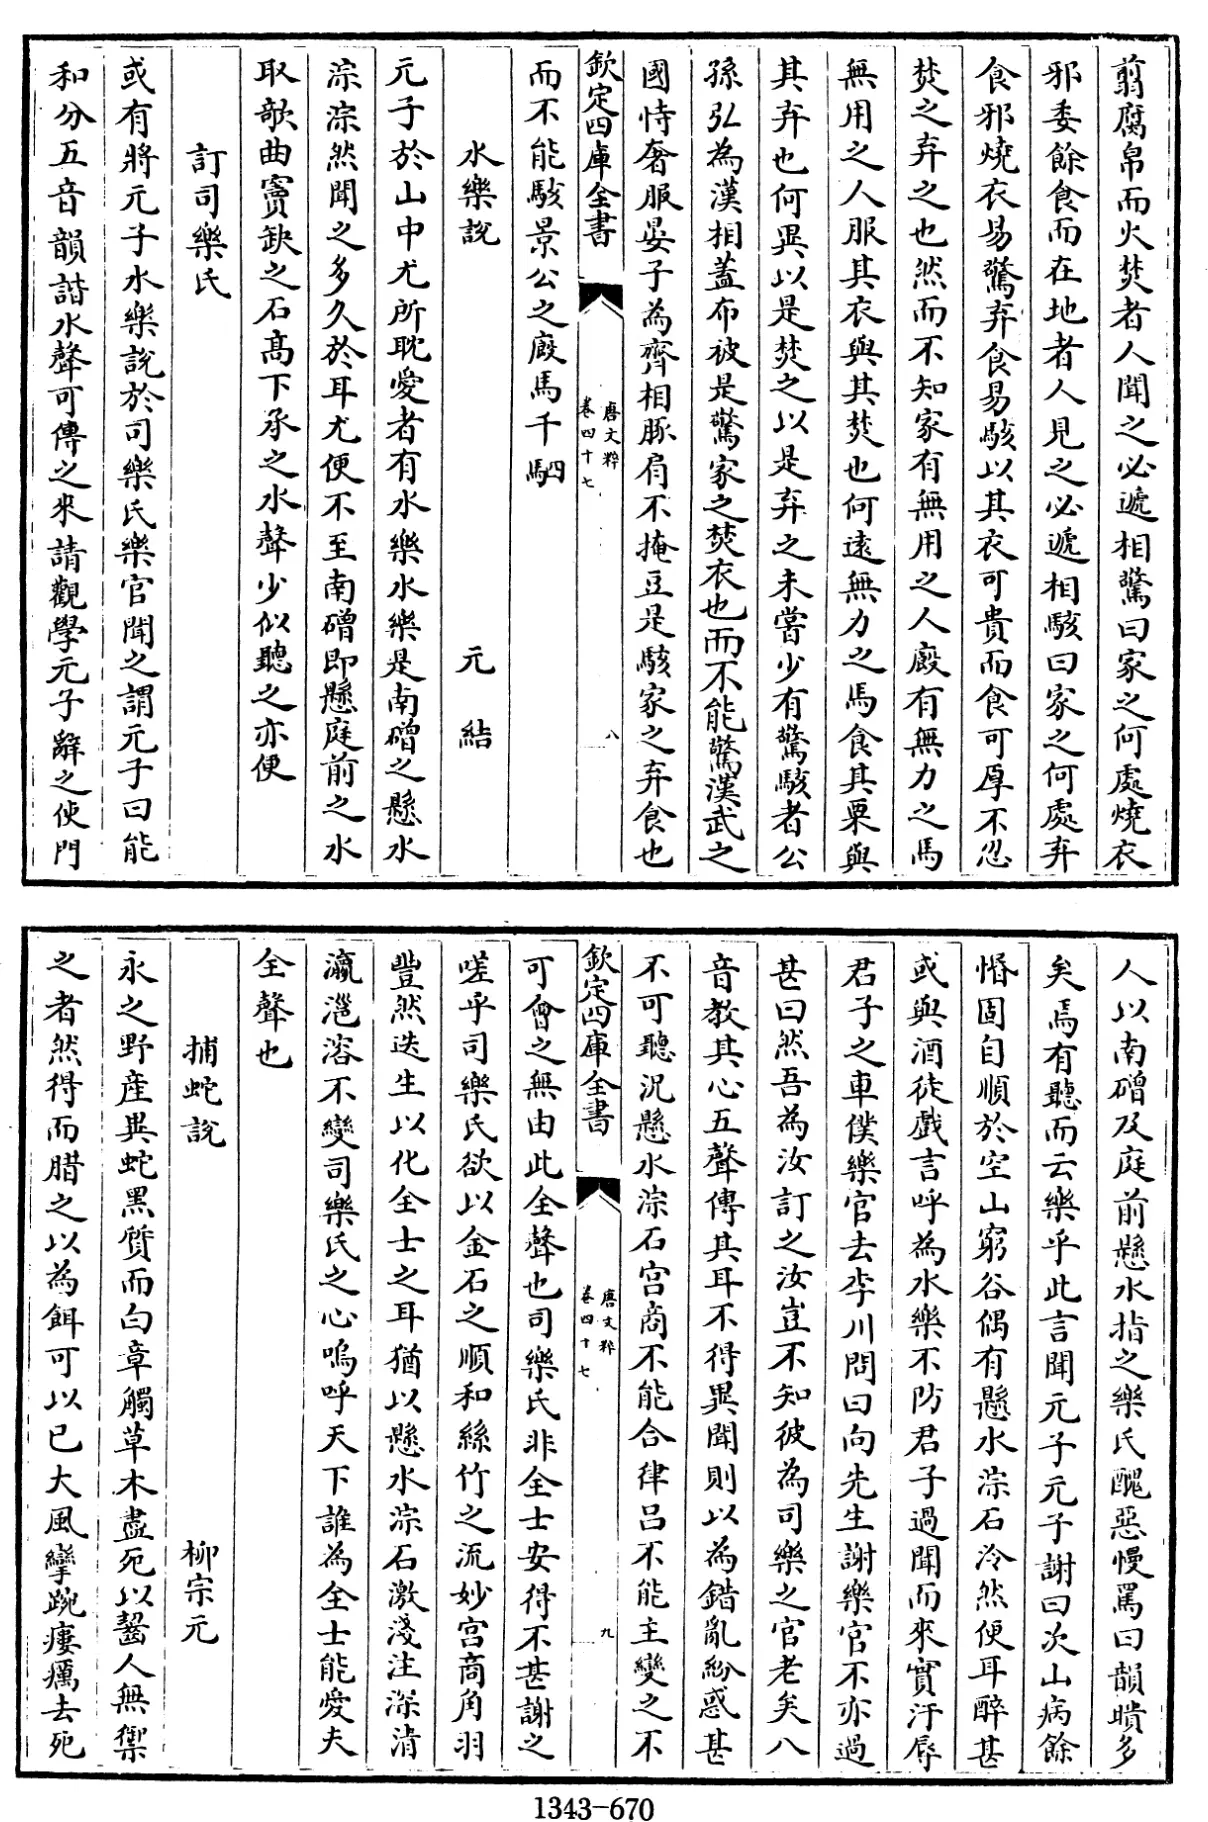 翦腐帛而火焚者人聞之必遞相驚曰家之何處燒衣
邪委餘食而在地者人見之必遞相駭曰家之何處弃
食邪燒衣易驚弃食易駭以其衣可貴而食可厚不忍
焚之弃之也然而不知家有無用之人廏有無力之馬
無用之人服其衣與其焚也何逺無力之馬食其粟與
其弃也何異以是焚之以是弃之未嘗少有驚駭者公
孫弘為漢相蓋布被是驚家之焚衣也而不能驚漢武之
國恃奢服晏子為齊相豚肩不掩豆是駭家之弃食也
欽定四庫全書
唐文粹
卷四十七
八
而不能駭景公之廏馬千駟
水樂説
元結
元子於山中尤所耽愛者有水樂水樂是南磳之懸水
淙淙然聞之多久於耳尤便不至南磳即懸庭前之水
取欹曲竇缺之石髙下承之水聲少似聽之亦便
訂司樂氏
或有將元子水樂説於司樂氏樂官聞之謂元子曰能
和分五音韻諧水聲可傳之來請觀學元子辭之使門
人以南磳及庭前懸水指之樂氏醜惡慢罵曰韻聵多
矣焉有聽而云樂乎此言聞元子元子謝曰次山病餘
惛固自順於空山窮谷偶有懸水淙石泠然便耳醉甚
或與酒徒戲言呼為水樂不防君子過聞而來實汙辱
君子之車僕樂官去李川問曰向先生謝樂官不亦過
甚曰然吾為汝訂之汝豈不知彼為司樂之官老矣八
音教其心五聲傳其耳不得異聞則以為錯亂紛惑甚
不可聽況懸水淙石宫商不能合律吕不能主變之不
欽定四庫全書
唐文粹
卷四十七
九
可會之無由此全聲也司樂氏非全士安得不甚謝之
嗟乎司樂氏欲以金石之順和絲竹之流妙宫商角羽
豐然迭生以化全士之耳猶以懸水淙石激淺注深清
瀛灉溶不變司樂氏之心嗚呼天下誰為全士能愛夫
全聲也
捕蛇説
柳宗元
永之野産異蛇黑質而白章觸草木盡死以齧人無禦
之者然得而腊之以為餌可以已大風攣踠瘻癘去死